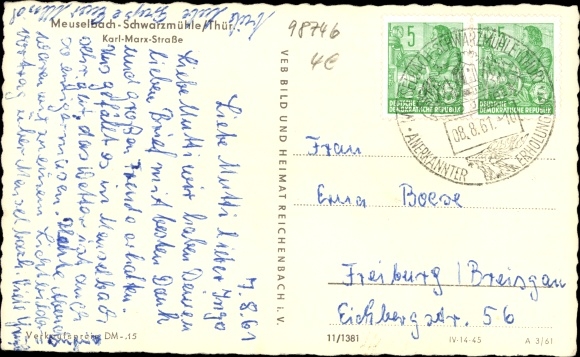 Meuselbach-Schwarzmühle/Thür.
Karl-Marx-Straße
98746
4€
7.8.61
Liebe Mutti lieber Ingo
Liebe Mutti wir haben Deinen
lieben Brief mit besten Dank
und großer Freude erhalten.
Uns gefällt es in Meuselbach
sehr gut, das Wetter ist auch
so einigermaßen. Heute
waren wir zu einem Lichtbilder
vortrag über Meuselbach.
VEB BILD UND HEIMAT REICHENBACH i. V.
5
DEUTSCHE DEMOKRATISCHE REPUBLIK
5
DEUTSCHE DEMOKRATISCHE REPUBLIK
08.8.61
ANERKANNTER
Frau
Erna Boese
Freiburg / Breisgau
Eichbergstr. 56
Verkaufspreis DM -.15
11/1381
IV-14-45
A 3/61